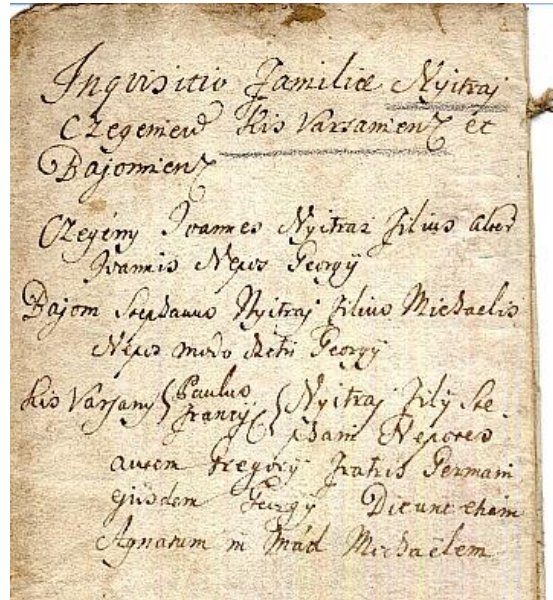 Inquisitio Familiæ Nyitraj
Czegemen Kis Varsamiens et
Bajomiens
Czegény Joannes Nyitrai Filius alter
Joannis Nepos Georgÿ
Bajom Stephanus Nyitraj Filius Michaelis
Nepos modo dicti Georgÿ
Kis Varsany Paulus Nyitraj Filÿ Ste-
Francÿ phani Nepotes
autem Gregorÿ Fratris Germani
ejusdem Georgÿ Dicunt etiam
Agnatum in Mád Michaëlem